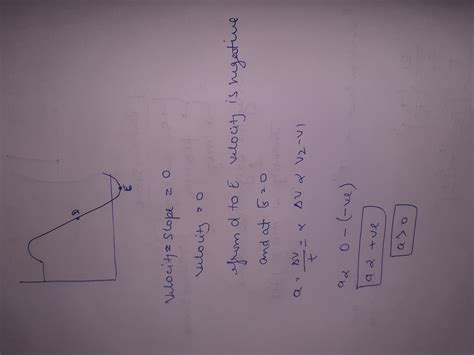 d
E
velocity = slope = 0
velocity = 0
from d to E velocity is negative
and at E = 0
a = Δv/t = ∝ Δv ∝ v2 - v1
a ∝ 0 - (-ve)
a ∝ +ve
a > 0